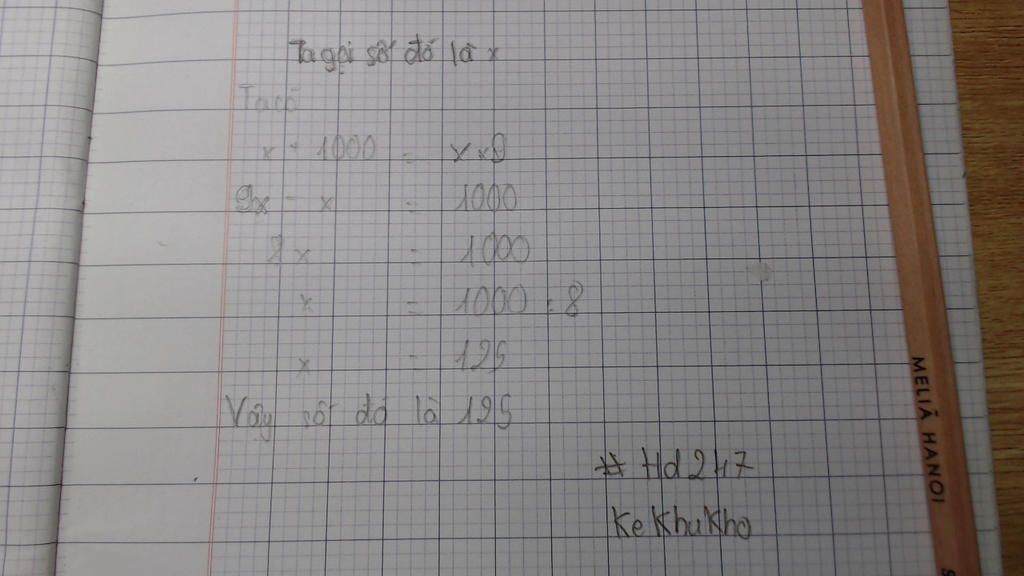 Ta gọi số đó là x
Ta có
x + 1000 = x x 9
9x - x = 1000
8x = 1000
x = 1000 : 8
x = 125
Vậy số đó là 125
# Hd 247
KeKhuKho
MELIÁ HANOI